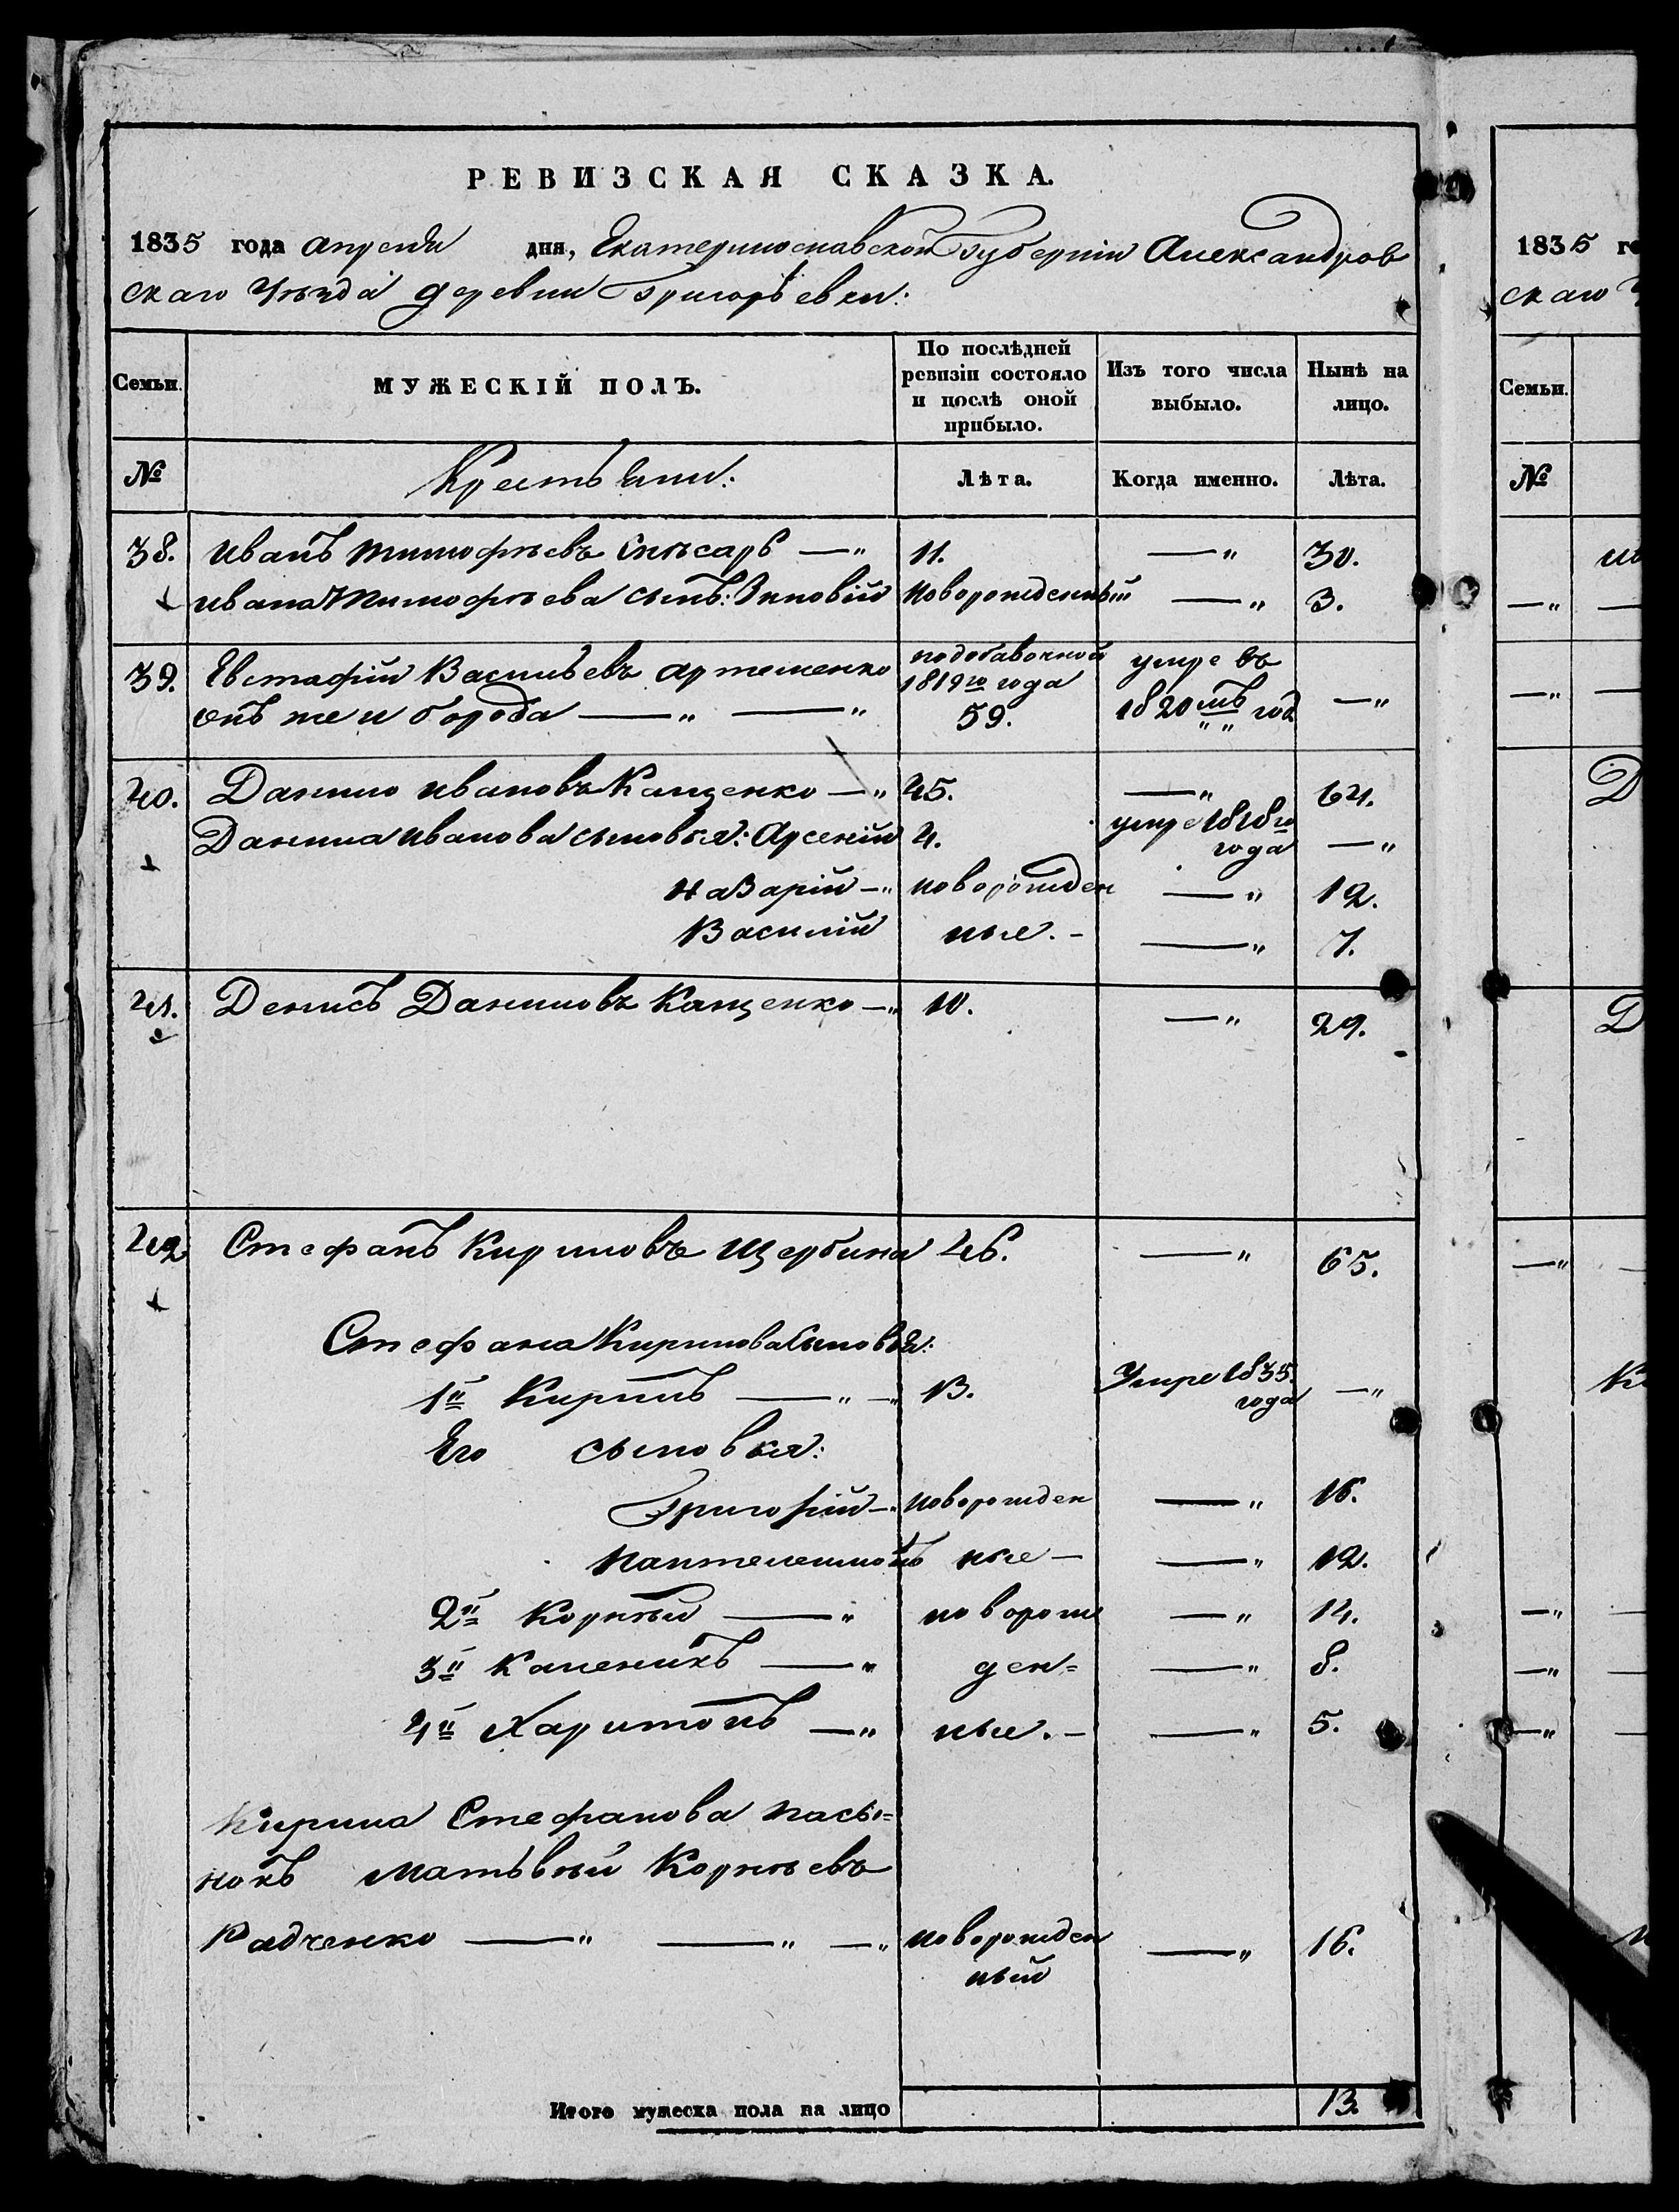 РЕВИЗСКАЯ СКАЗКА.
1835 года апреля дня, Екатеринославской Губернiи Александров
скаго Уѣзда деревни Григорьевки:
Семьи. МУЖЕСКІЙ ПОЛЪ. По послѣдней ревизіи состояло и послѣ оной прибыло. Изъ того числа выбыло. Нынѣ на лицо.
№ Крестьяни: Лѣта. Когда именно. Лѣта.
38. Иванъ Тимофѣевъ Слѣсарь —„ 11. —„ 30.
Ивана Тимофѣева сынъ: Зиновій Новорожденный —„ 3.
39. Евстафій Васильевъ Артеменко подобавочной 1819го года умре въ
онъ же и борода —„ —„ 59. 1820мъ год —„
40. Данило Ивановъ Кащенко —„ 45. —„ 64.
Данила Иванова сыновья: Арсеній 4. умре 1818го года —„
Назарій —„ новорожден —„ 12.
Василій ные. – —„ 7.
41. Денисъ Даниловъ Кащенко —„ 10. —„ 29.
42 Стефанъ Кириловъ Щербина 46. —„ 65.
Стефана Кирилова Сыновья:
1й Кирилъ —„ —„ 13. Умре 1835. года —„
Его сыновья:
Григорій —„ новорожден —„ 16.
Пантелеимонъ ные – —„ 12.
2й Корнѣй —„ новорож —„ 14.
3й Каленикъ —„ ден= —„ 8.
4й Харитонъ —„ ные. – —„ 5.
Кирила Стефанова пасы=
нокъ Матьвѣй Корнѣевъ
Радченко —„ —„ —„ новорожден —„ 16.
ный
Итого мужеска пола на лицо 13.
1835 го
скаго У
Семьи.
№